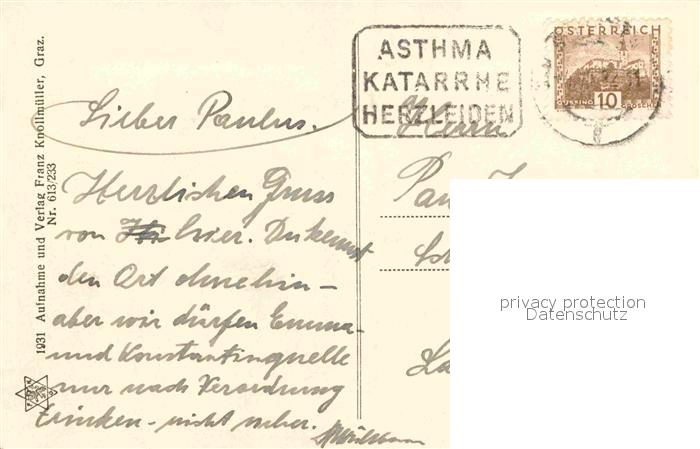 1931 Aufnahme und Verlag Franz Knollmüller, Graz.
Nr. 613/233
ASTHMA
KATARRHE
HERZLEIDEN
ÖSTERREICH
GÜSSING 10 GROSCHEN
Lieber Paulus.
Herzlichen Gruss
von hier. Du kennst
den Ort ohnehin -
aber wir dürfen Emma-
und Konstantinquelle
nur nach Verordnung
trinken - nicht mehr.
Herrn
privacy protection
Datenschutz